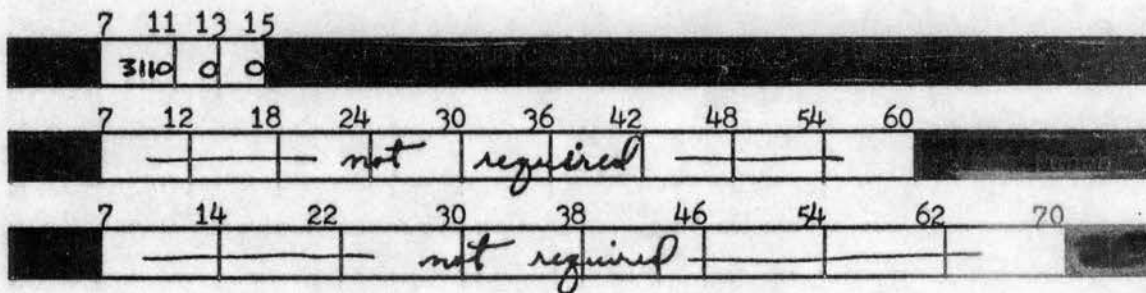 7 11 13 15
3110 0 0
7 12 18 24 30 36 42 48 54 60
not required
7 14 22 30 38 46 54 62 70
not required